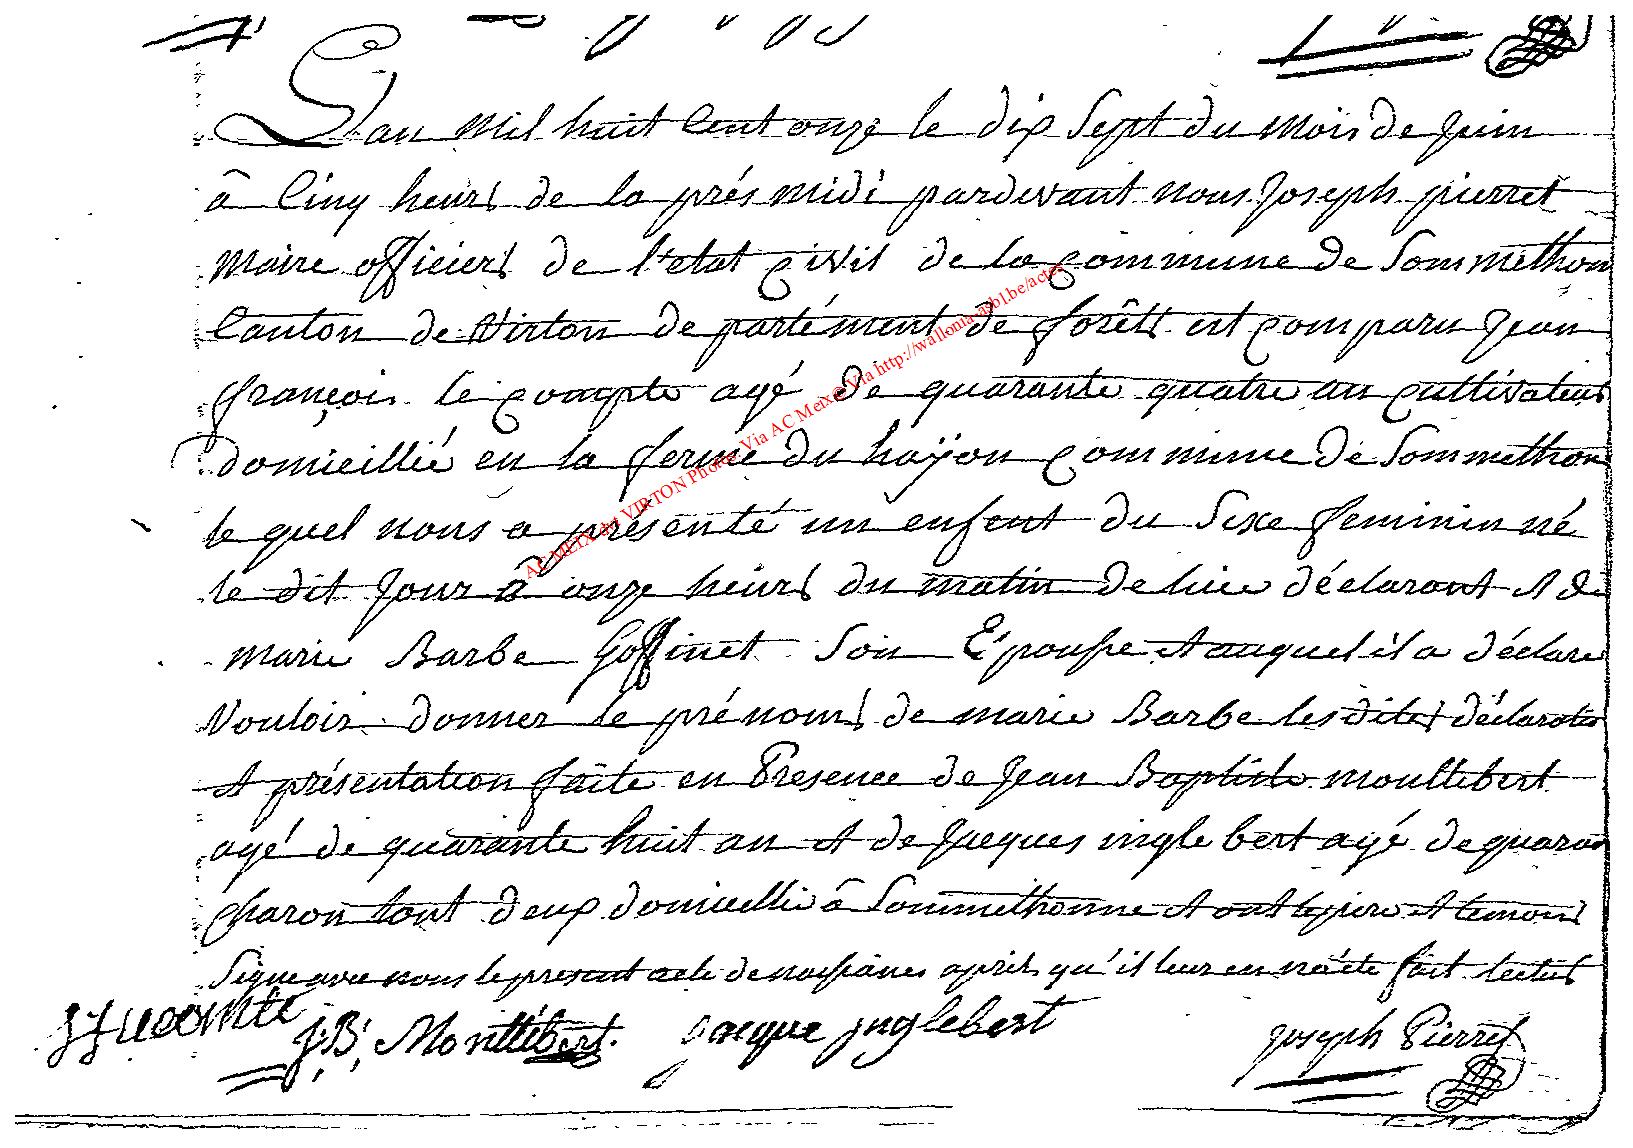 L'an mil huit Cent onze le dix Sept du mois de Juin
â Cinq heurs de la prés midi pardevant nous Joseph pierret
Maire officiers de l'etat civil de la commune de Sommethon
Canton de Virton de partément de forêts est comparu Jean
françois le compte agé de quarante quatre an cultivateur
domicillié en la ferme du haÿon commune de Sommethon
le quel nous a présenté un enfent du Sexe feminin né
le dit Jour â onze heurs du matin de luie déclarant et de
marie Barbe Goffinet Son Épousse et auquel il a déclare
Vouloir donner le prénoms de marie Barbe les dites déclaration
et présentation faite en Presence de Jean Baptiste moultebert
agé de quarante huit an et de Jacques ingle bert agé de quaran
charon tout deux domicellié â Sommethonne et ont le pere et temoins
Signe avec nous le present acte de naissances après qu'il leur en na été fait lecture
J F Lecomte J: B: Montlibert. Jacque jnglebert Joseph Pierret
AC MEIX dvt VIRTON Photos Via AC Meix © Via http://wallonia-asbl.be/actes